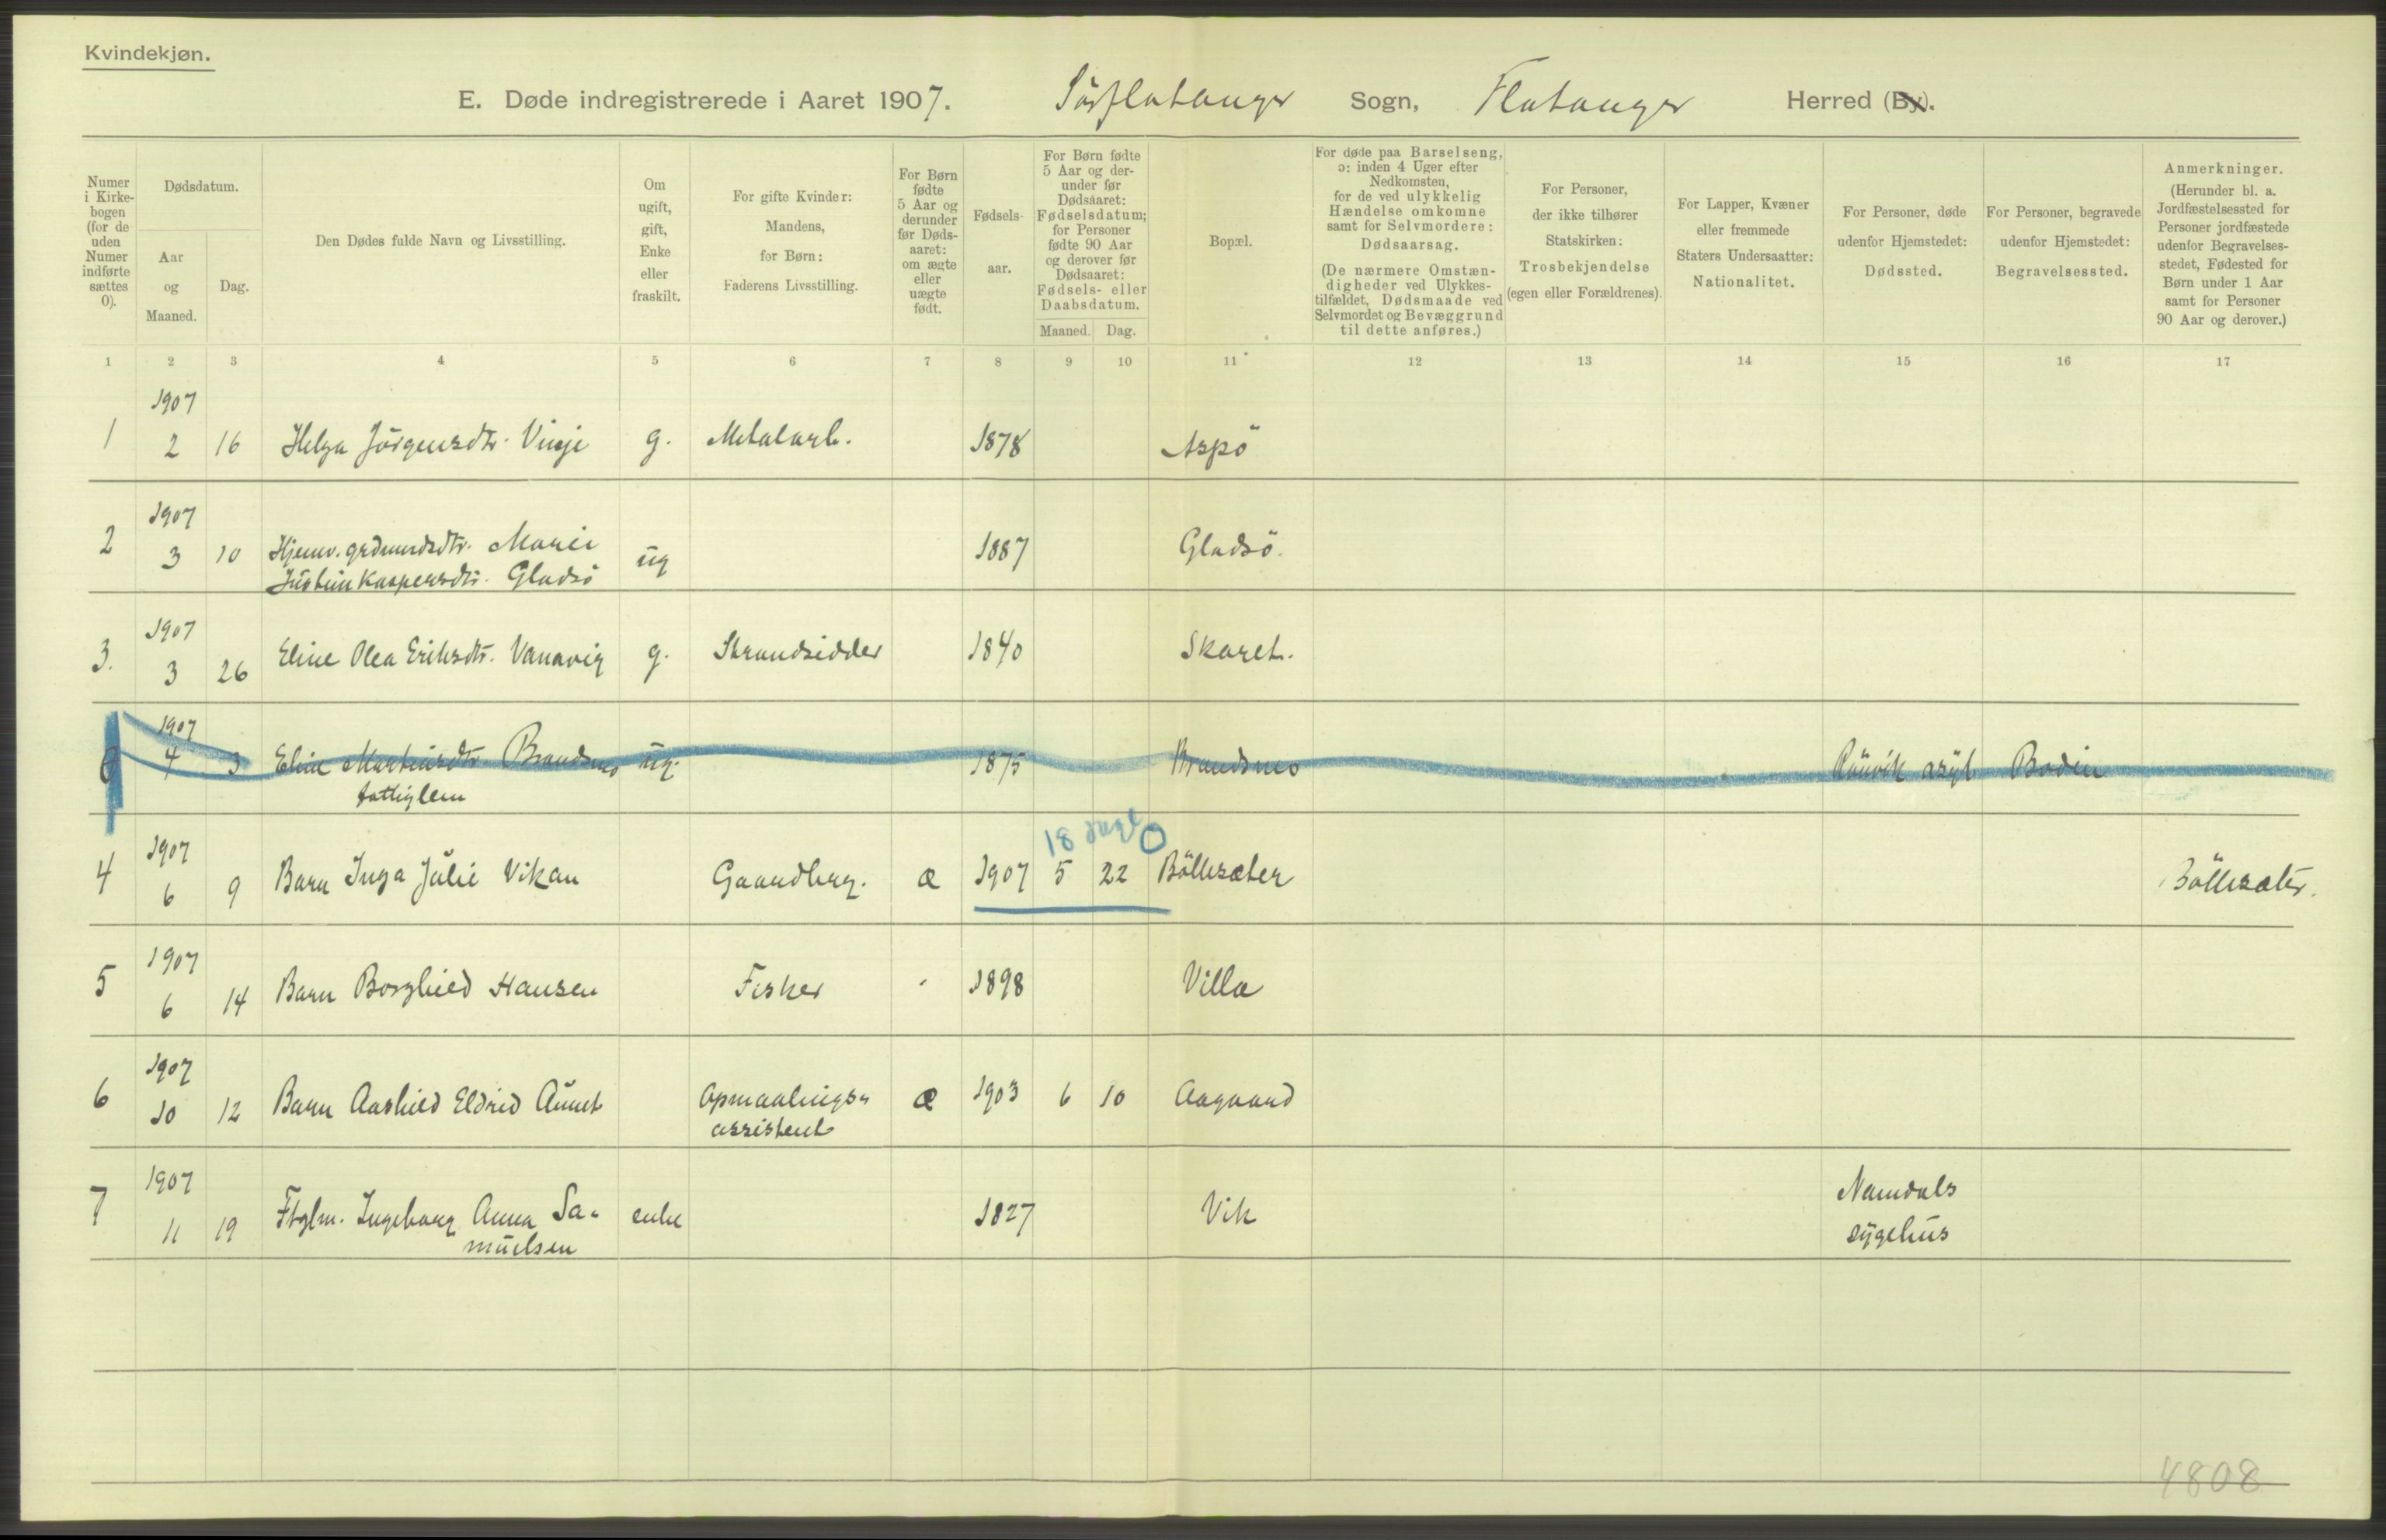 Kvindekjøn.
E. Døde indregistrerede i Aaret 1907. Sörflatanger Sogn, Flatanger Herred (By).
Numer i Kirkebogen (for de uden Numer indførte sættes 0).
Dødsdatum.
Aar og Maaned.
Dag.
Den Dødes fulde Navn og Livsstilling.
Om ugift, gift, Enke eller fraskilt.
For gifte Kvinder: Mandens, for Børn: Faderens Livsstilling.
For Børn fødte 5 Aar og derunder før Dødsaaret: om ægte eller uægte født.
Fødselsaar.
For Børn fødte 5 Aar og derunder før Dødsaaret: Fødselsdatum; for Personer fødte 90 Aar og derover før Dødsaaret: Fødsels- eller Daabsdatum.
Maaned. Dag.
Bopæl.
For døde paa Barselseng, ɔ: inden 4 Uger efter Nedkomsten, for de ved ulykkelig Hændelse omkomne samt for Selvmordere: Dødsaarsag.
(De nærmere Omstændigheder ved Ulykkestilfældet, Dødsmaade ved Selvmordet og Bevæggrund til dette anføres.)
For Personer, der ikke tilhører Statskirken: Trosbekjendelse (egen eller Forældrenes).
For Lapper, Kvæner eller fremmede Staters Undersaatter: Nationalitet.
For Personer, døde udenfor Hjemstedet: Dødssted.
For Personer, begravede udenfor Hjemstedet: Begravelsessted.
Anmerkninger. (Herunder bl. a. Jordfæstelsessted for Personer jordfæstede udenfor Begravelsesstedet, Fødested for Børn under 1 Aar samt for Personer 90 Aar og derover.)
1 2 3 4 5 6 7 8 9 10 11 12 13 14 15 16 17
1907
1 2 16 Helga Jörgensdtr. Vinje g. Metalarb. 1878 Aspö
1907
2 3 10 Hjemv. grdmndsdtr. Marie ug 1887 Gladsö.
Justine Kaspersdtr. Gladsö
1907
3. 3 26 Eline Olea Eriksdtr. Vanavig g. Strandsidder 1840 Skaret.
1907
0 4 3 Eline Martinsdtr Brandsmo ug. 1875 Brandsmo Rönvik asyl Bodin
fattiglem
18 dage 0
1907
4 6 9 Barn Inga Julie Vikan Gaardbrg. æ 1907 5 22 Böllesæter Böllesæter.
1907
5 6 14 Barn Borghild Hansen Fisker " 1898 Villa
1907
6 10 12 Barn Aashild Eldrid Aunet Opmaalings- æ 1903 6 10 Aagaard
assistent
1907
7 11 19 Ftglm. Ingeborg Anna Sa- enke 1827 Vik Namdals
muelsen sygehus
4808